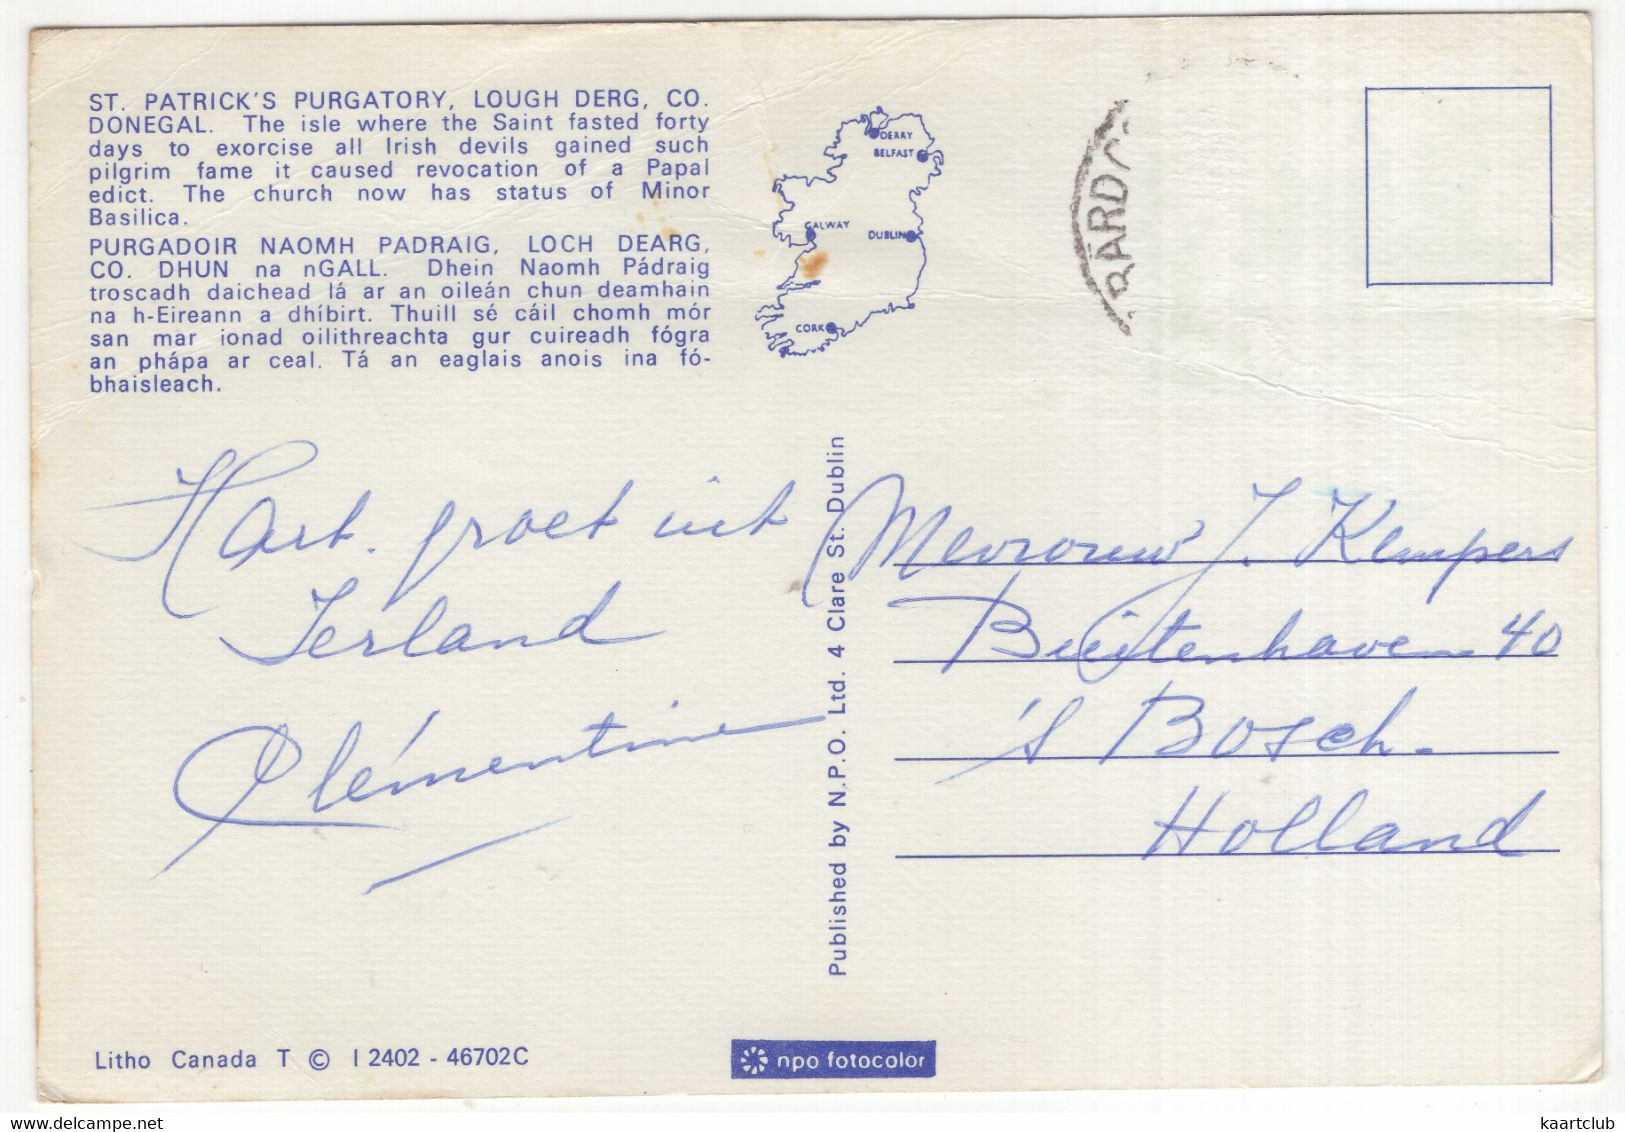 ST. PATRICK'S PURGATORY, LOUGH DERG, CO.
DONEGAL. The isle where the Saint fasted forty
days to exorcise all Irish devils gained such
pilgrim fame it caused revocation of a Papal
edict. The church now has status of Minor
Basilica.
PURGADOIR NAOMH PADRAIG, LOCH DEARG,
CO. DHUN na nGALL. Dhein Naomh Pádraig
troscadh daichead lá ar an oileán chun deamhain
na h-Eireann a dhíbirt. Thuill sé cáil chomh mór
san mar ionad oilithreachta gur cuireadh fógra
an phápa ar ceal. Tá an eaglais anois ina fó-
bhaisleach.
DERRY
BELFAST
GALWAY
DUBLIN
CORK
Hart. groet uit
Ierland
Clémentine
Published by N.P.O. Ltd. 4 Clare St. Dublin
Mevrouw J. Kempers
Buitenhaven 40
's Bosch.
Holland
Litho Canada T © I 2402 - 46702C
npo fotocolor
kaartclub